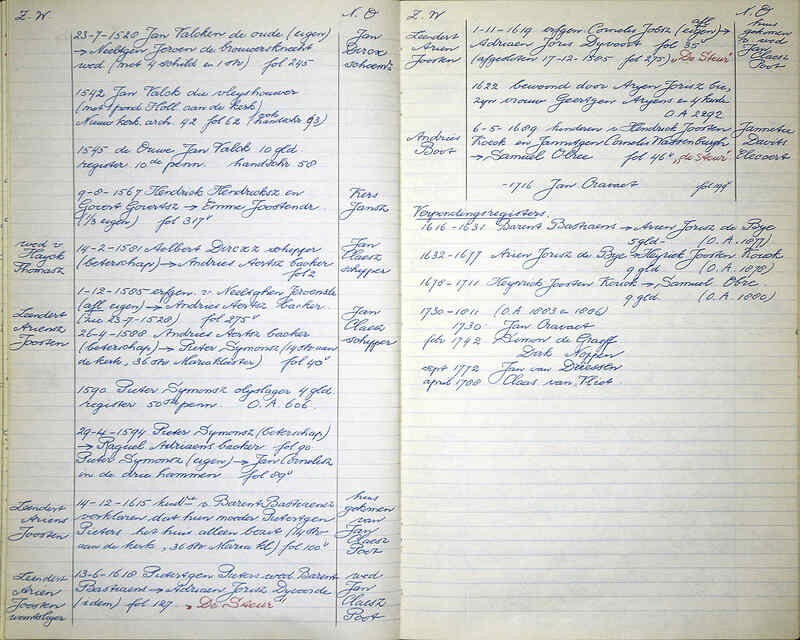 Z.W.
N.O
23-7-1520 Jan Valcken de oude (eigen)
→ Neeltgen Jeroen de brouwersknecht
wed (met 4 schild en 1 str) fol 245
Jan
Dircx
schoem
1542 Jan Valck die vleyshouwer
(met 1 pond Holl. aan de kerk)
Nieuw kerk. arch. 42 fol 62 (ook handschr 93)
1545 de Ouwe Jan Valck 10 gld
register 10de penn. handschr 58
9-8-1567 Hendrick Hendricksz en
Govert Govertsz → Emme Joostendr.
(1/3 eigen) fol 317v
Kers
Jansz
wed v
Huyck
Thomasz
14-2-1581 Aelbert Dircxz schipper
(beterschap) → Andries Aertsz backer
fol 2
Jan
Claesz
schipper
1-12-1585 erfgen. v. Neeltghen Jeroensdr
(afl eigen) → Andries Aertsz backer
(zie 23-7-1520) fol 275v
Leendert
Ariensz
Joosten
Jan
Claesz
schipper
26-4-1588 Andries Aertsz backer
(beterschap) → Pieter Symonsz (14 str aan
de kerk, 36 str Mariaklooster) fol 40v
1590 Pieter Symonsz olyslager 4 gld.
register 50ste penn. O.A. 606.
29-4-1594 Pieter Symonsz (beterschap)
→ Raquel Adriaens backer fol 90
Pieter Symonsz (eigen) → Jan Cornelisz
in de drie hammen fol 89v
Leendert
Ariens
Joosten
14-12-1615 kind v. Barent Bastiaensz
verklaren dat hun moeder Pietertgen
Pieters het huis alleen boedt (14 str
aan de kerk, 36 str Maria kl) fol 100v
huis
gekomen
van
Jan
Claesz
Poot
Leendert
Arien
Joosten
13-6-1618 Pietertgen Pieters wed Barent
Bastiaens → Adriaen Jorisz Dyvoorde
(idem) fol 127. "De Steur"
wed
Jan
Claesz
Poot
Z.W
N.O
Leendert
Arien
Joosten
1-11-1619 erfgen. Cornelis Jobsz (afl eigen) →
Adriaen Joris Dyvoort fol 35v
(afgelosten 17-12-1585 fol 275) "De Steur"
huis
gekomen
v. wed
Jan
Claesz
Poot
1622 bewoond door Aryen Jorisz bie,
zyn vrouw Geertgen Aryens en 4 kinde
O.A 2292
Andries
Boot
6-5-1689 kinderen v. Hendrick Joosten
Kock en Jannetgen Cornelis Wassenburgh
→ Samuel Obree fol 46v "de Steur"
Jannetie
Davits
Elevoert
-1716 Jan Cravaet fol 144v
Verpondingsregisters.
1616-1631 Barent Bastiaens → Arien Jorisz de Bye
5 gld- (O.A. 1877)
1632-1677 Arien Jorisz de Bye → Heyrick Joosten Korck
9 gld (O.A. 1878)
1678-1711 Heynrick Joosten Korck → Samuel Obre.
9 gld. (O.A. 1880)
1730-1811 (O.A. 1883 en 1886)
1730 Jan Cravaet
febr 1742 Simon de Graeff
Dirk Noppen
sept 1772 Jan van Driesten
april 1788 Claas van Vliet.